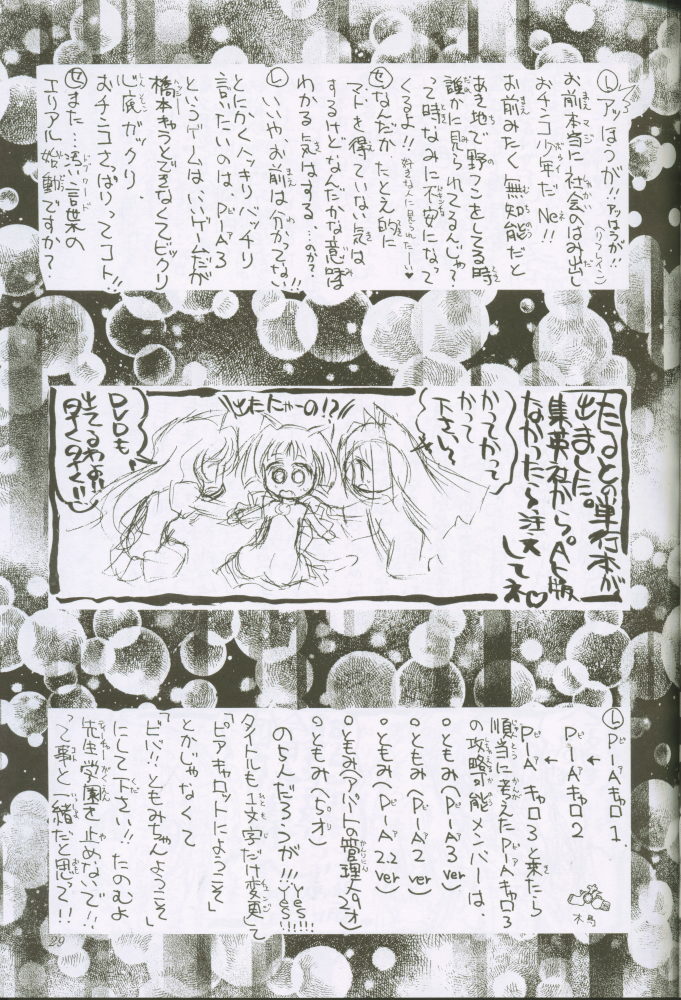 Ⓛアッはうが!!アッはうが!!(リフレイン)
お前本当に社会のはみ出し
おチンコ少年だNe!!
お前みたく無知能だと
あき地で野ぐそしてる時
誰かに見られてるんじゃ?
って時なみに不安になって
くるよ!!好きな人に見られたー♥
Ⓢなんだか、たとえ的に
マトを得ていない気は
するけどなんだかな意味は
わかる気はする…のか?
Ⓛいいや、お前は分かってない!!
とにかくハッキリバッチリ
言いたいのは、P-A3
というゲームはいいゲームだが
橋本キャラどきなくてビックリ
心底ガックリ、
おチンコさっぱりってコト!!
Ⓢまた…汚い言葉の
エリアル始動ですか?
たるとの単行本が
出ました。
集英社から。A5版
なかったら注文
してネ♡
かってかって
かって
下さい〜
出たにゃーの!?
DVDも
出てるわよ!!
早く早く!!
ⓁP-Aキャロ1.
↓
P-Aキャロ2
↓
P-Aキャロ3と来たら
順当に考えたP-Aキャロ3
の攻略可能メンバーは、
○ともみ(P-A3ver)
○ともみ(P-A2ver)
○ともみ(P-A2.2ver)
○ともみ(アパートの管理人29才)
○ともみ(5才)
のちんだろうが!!!yes!!yes!!!
タイトルも1文字だけ変更って
「ピアキャロットにようこそ」
とかじゃなくて
「ビバ!!ともみちゃんようこそ」
にして下さい!!たのむよ
先生学園を止めないで!!
って事と一緒だと思って!!
木馬
29